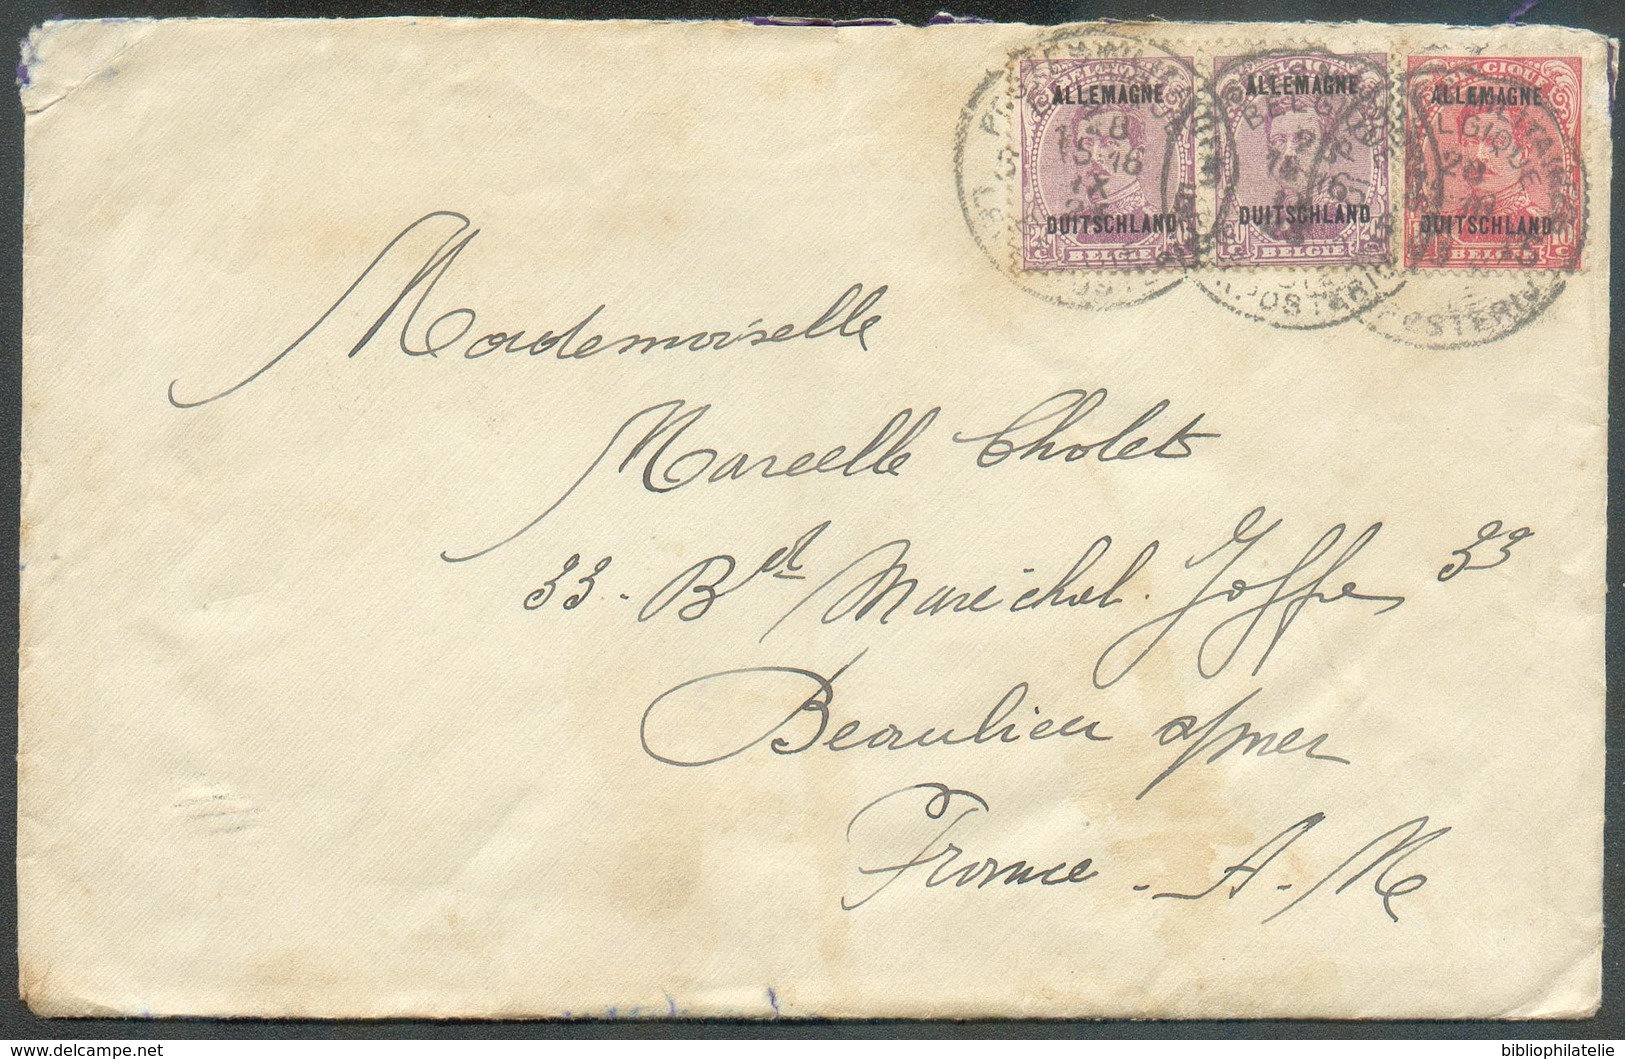 BELGIQUE BELGIQUE BELGIQUE
ALLEMAGNE ALLEMAGNE ALLEMAGNE
DUITSCHLAND DUITSCHLAND DUITSCHLAND
BELGIË BELGIË BELGIË
Mademoiselle
Marcelle Cholet
33. Bd Maréchal. Joffre 33
Beaulieu s/mer
France. A. M
bibliophilatelie
delcampe.net